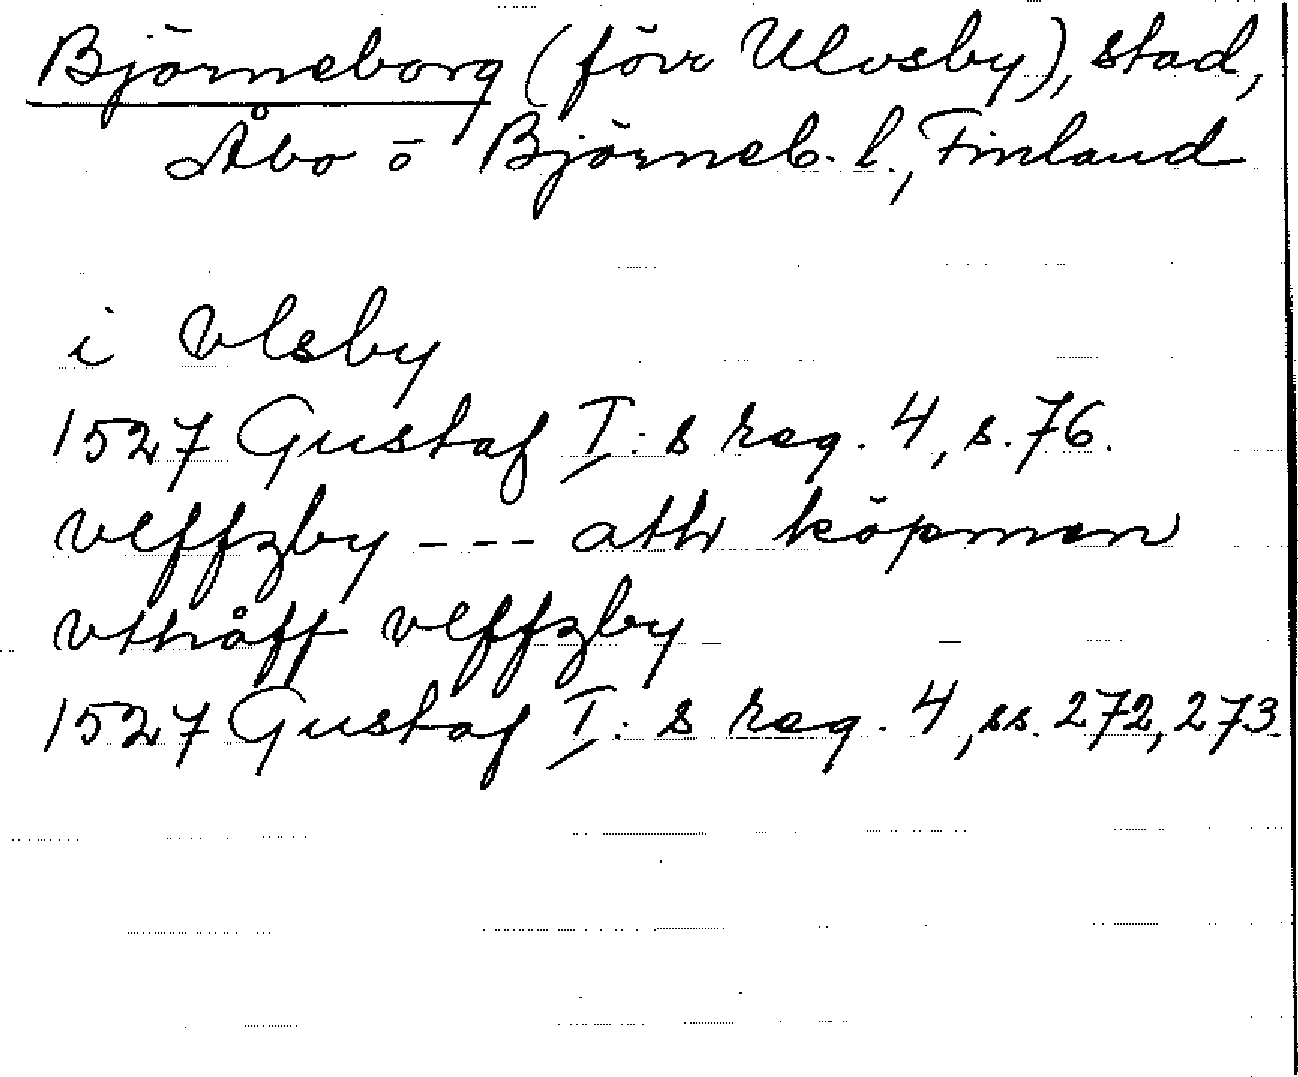 Björneborg (förr Ulvsby), stad,
Åbo o Björneb. l., Finland
i vlsby
1527 Gustaf I:s reg. 4, s. 76.
vlffzby --- ath köpmen
vthåff vlffzby
1527 Gustaf I:s reg. 4, ss. 272, 273.